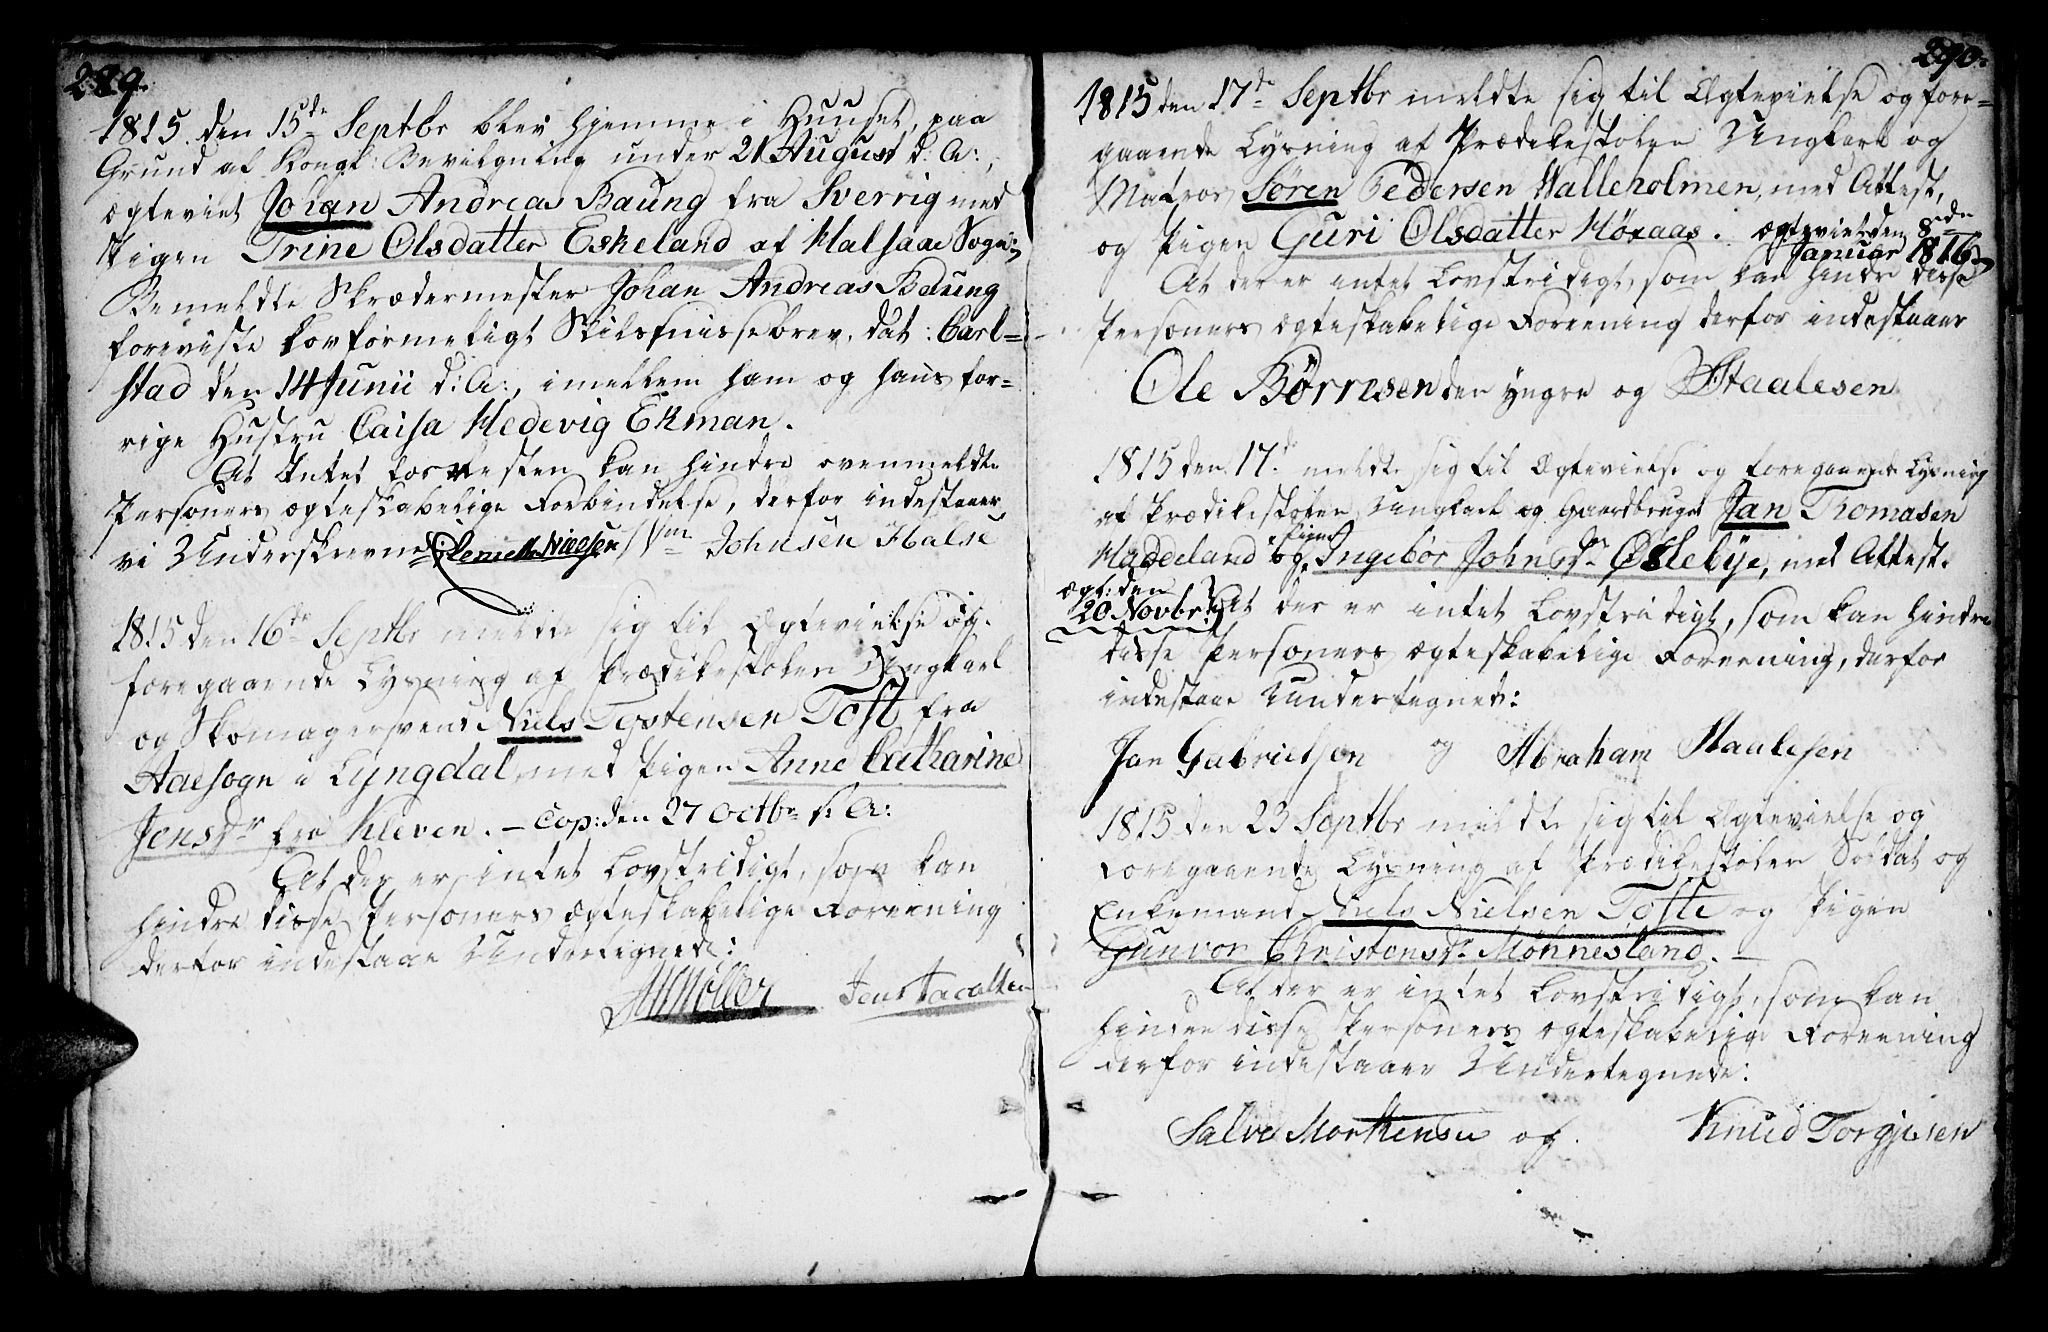 289.
1815. den 15de Septbr blev hjemme i Huuset, paa
Grund af Kongl: Bevilgning under 21 August d: A:,
ægteviet Johan Andreas Baung fra Sverrig med
Pigen Trine Olsdatter Eskeland af Halsaae Sogn;
Bemeldte Skrædermester Johan Andreas Baung
foreviste lovformeligt Skilsmissebrev, dat: Carl=
stad den 14 Junii d: A:, imellem ham og hans for=
rige Hustru Caisa Hedevig Ekman.
At Intet kan hindre ovenmeldte
Personers ægteskabelige Forbindelse, derfor indestaaer
vi Underskrevne Nielsen Johnsen Halse
1815 den 16de Septbr meldte sig til Ægtevielse og
foregaaende Lysning af Prædikestolen Ungkarl
og Skomagersvend Niels Torstensen Toft fra
Aaesogn i Lyngdal med Pigen Anne Catharine
Jensdr fra Kleven. – Cop: den 27 Octbr s: A:
At der er intet Lovstridigt, som kan
hindre disse Personers ægteskabelige Foreening
derfor indestaae Undertegnede:
Møller Jens Jacobsen
290.
1815 den 17de Septbr meldte sig til Ægtevielse og fore=
gaaende Lysning af Prædikestolen Ungkarl og
Matros Sören Pedersen Valleholmen, med Attest,
og Pigen Guri Olsdatter Höxaas. ægteviet den 8de
Januar 1816
At der er intet Lovstridigt, som kan hindre disse
Personers ægteskabelige Foreening derfor indestaaer
Ole Börresen den yngre og Staalesen
1815 den 17de meldte sig til Ægtevielse og foregaaende Lysning
af Prædikestolen Ungkarl og Gaardbruger Jan Thomasen
Pigen
Hadeeland og Ingebör Johnsdr Öslebye, med Attest.
ægt: den
20 Novbr. At der er intet Lovstridigt, som kan hindre
disse Personers ægteskabelige Foreening, derfor
indestaae Undertegnede:
Jan Gabrielsen og Abraham Staalesen
1815 den 23 Septbr meldte sig til Ægtevielse og
foregaaende Lysning af Prædikestolen Soldat og
Enkemand Niels Nielsen Tofte og Pigen
Gunvor Christensdr Möhnesland. –
At der er intet Lovstridigt, som kan
hindre disse Personers ægteskabelige Foreening
derfor indestaaer Undertegnede:
Salve Morthensen og Knud Torgjusen